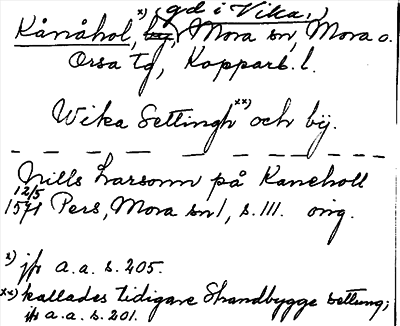 x) (gd i Vika.)
Kånåhol, by, Mora sn, Mora o.
Orsa tg, Kopparb. l.
Wika Settingh xx) och bÿ.
Nills Larsonn på Kaneholl
12/5 1571 Pers, Mora sn 1, s. 111. orig.
x) jfr a.a. s. 205.
xx) kallades tidigare Strandbygge settung;
jfr a.a. s. 201.